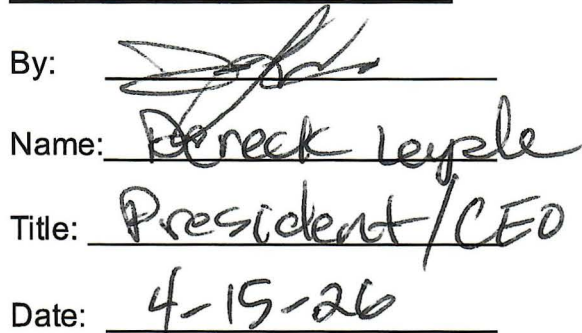 By:
Name: Dereck
Title: President/CEO
Date: 4-15-26